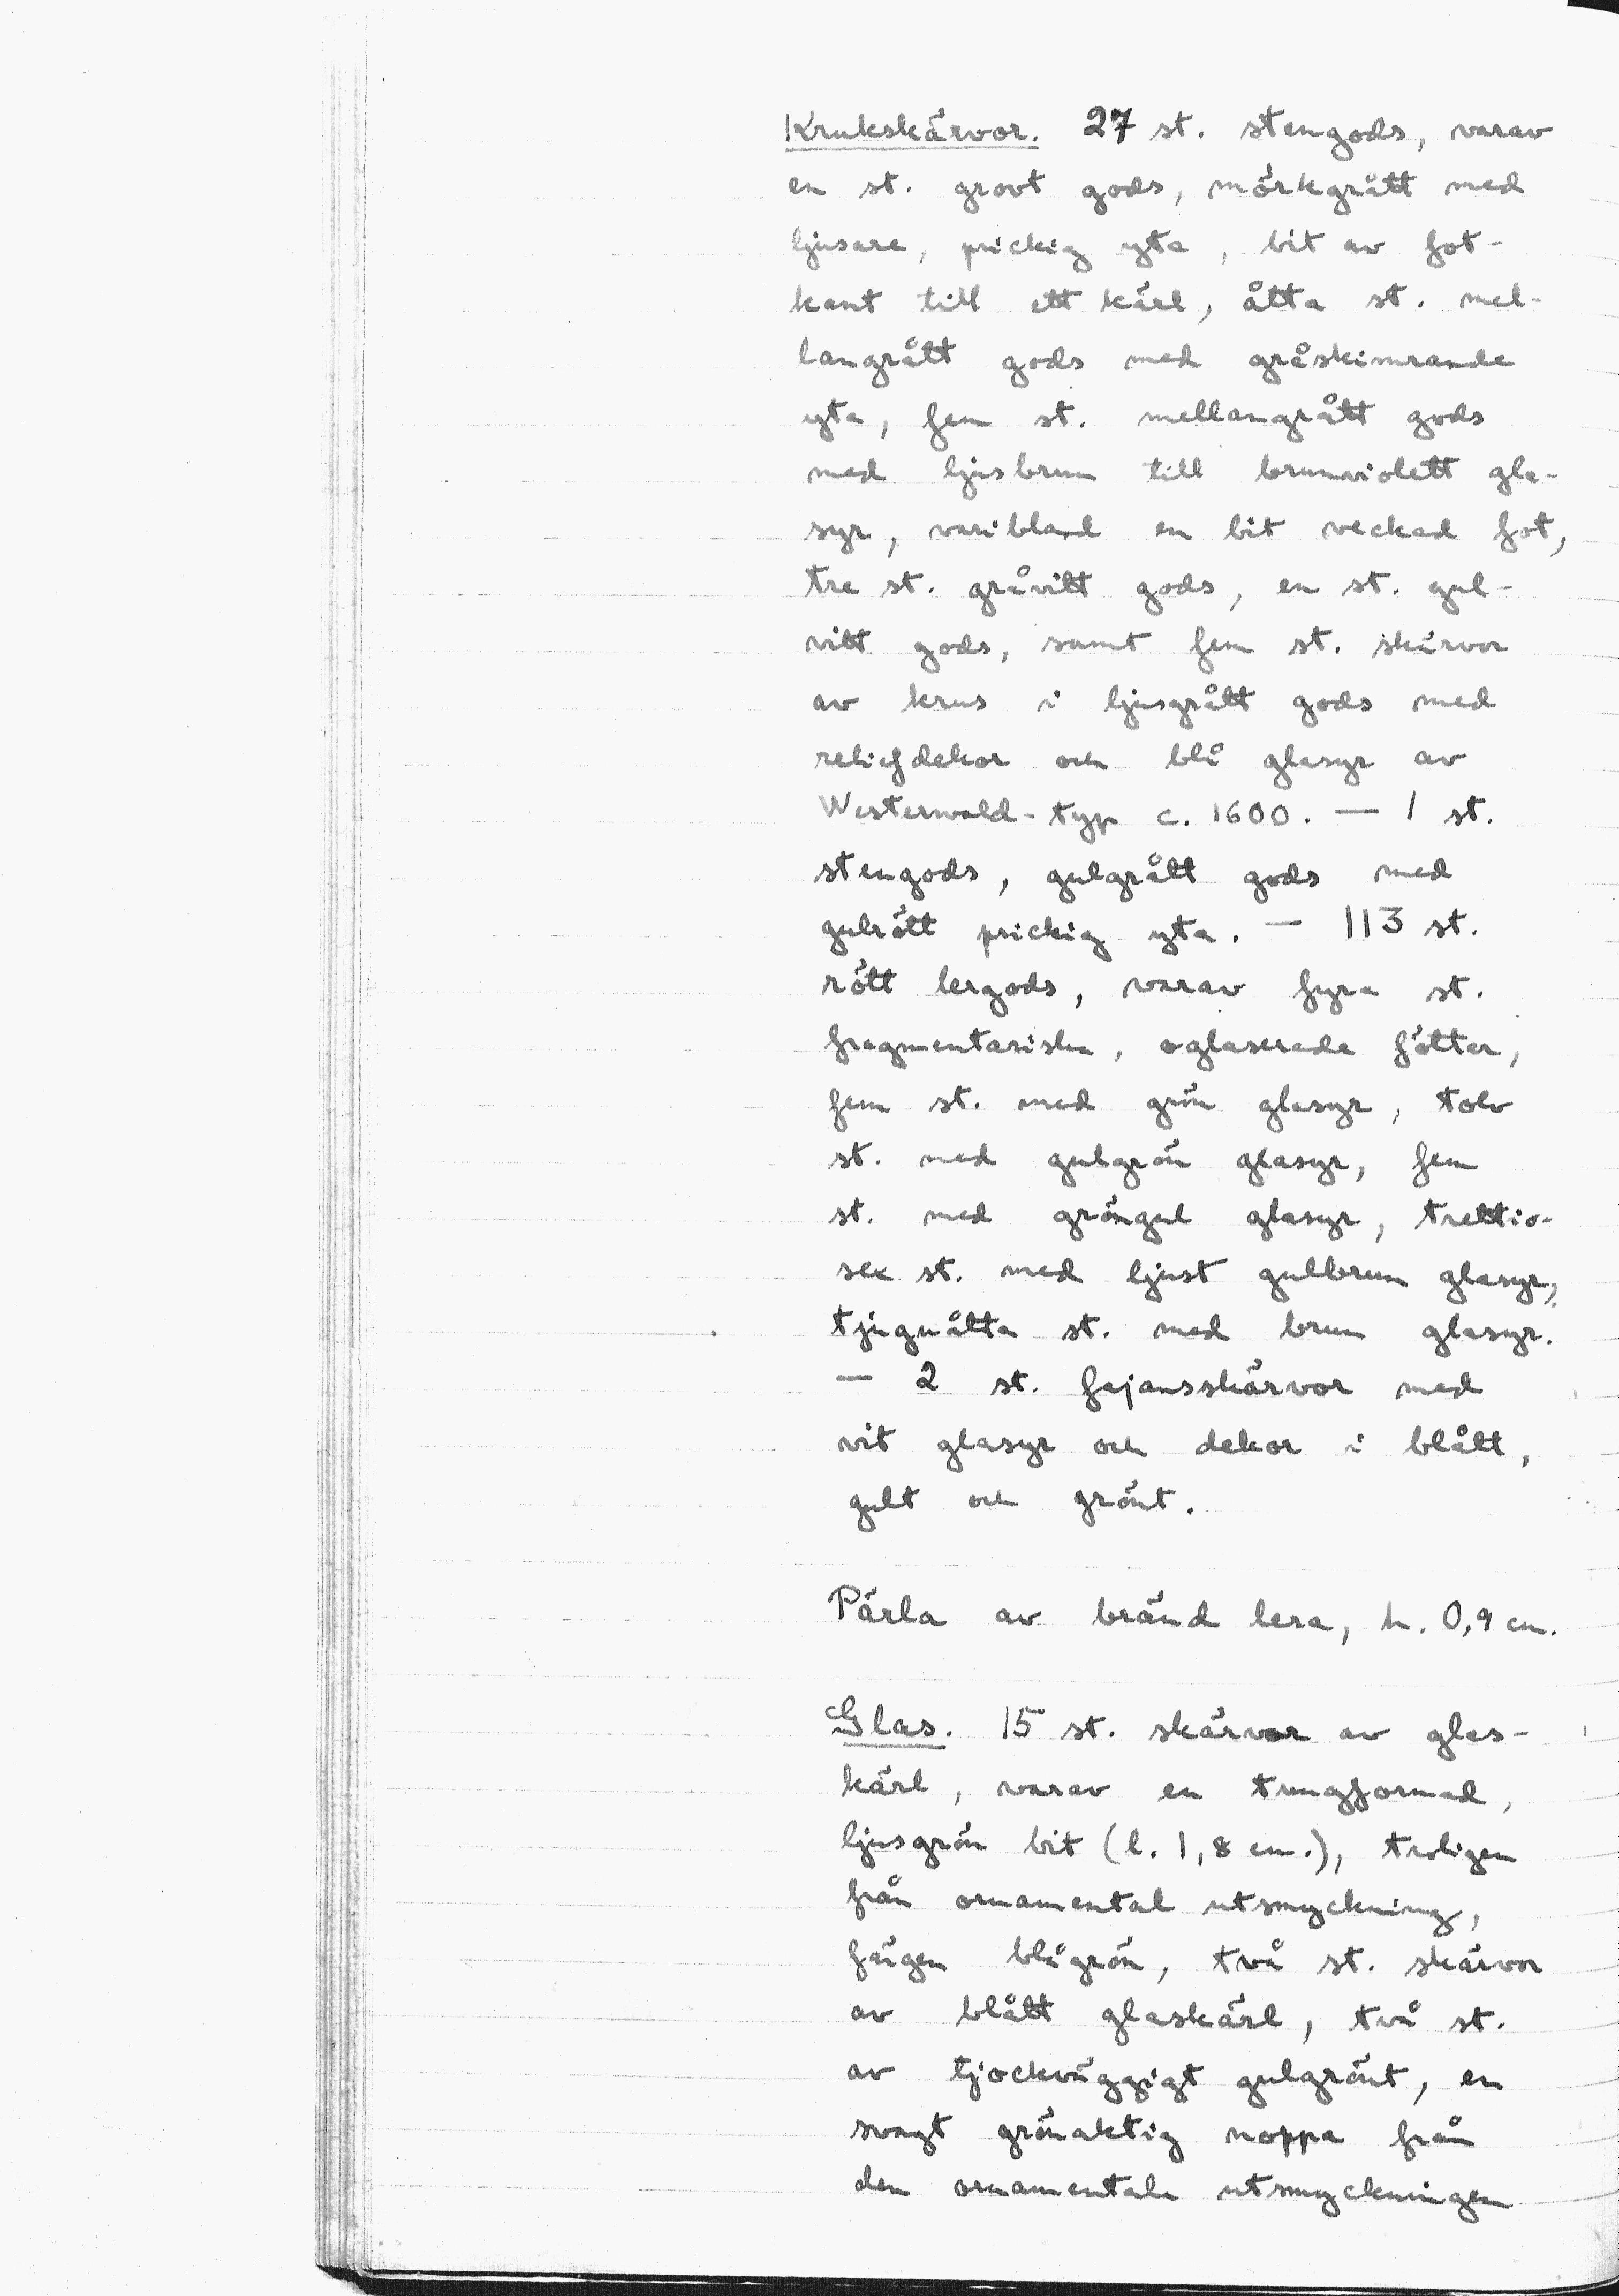 Krukskärvor. 27 st. stengods, varav
en st. grovt gods, mörkgrått med
ljusare, prickig yta, bit av fot-
kant till ett kärl, åtta st. mel-
langrått gods med gråskimrande
yta, fem st. mellangrått gods
med ljusbrun till brunviolett gla-
syr, varibland en bit veckad fot,
tre st. gråvitt gods, en st. gul-
vitt gods, samt fem st. skärvor
av krus i ljusgrått gods med
reliefdekor och blå glasyr av
Westerwald-typ c. 1600. — 1 st.
stengods, gulgrått gods med
gulrött prickig yta. — 113 st.
rött lergods, varav fyra st.
fragmentariska, oglaserade fötter,
fem st. med grön glasyr, tolv
st. med gulgrön glasyr, fem
st. med gröngul glasyr, trettio-
sex st. med ljust gulbrun glasyr,
tjuguåtta st. med brun glasyr.
— 2 st. fajansskärvor med
vit glasyr och dekor i blått,
gult och grönt.
Pärla av bränd lera, h. 0,9 cm.
Glas. 15 st. skärvor av glas-
kärl, varav en tungformad,
ljusgrön bit (l. 1,8 cm.), troligen
från ornamental utsmyckning,
färgen blågrön, två st. skärvor
av blått glaskärl, två st.
av tjockväggigt gulgrönt, en
svagt grönaktig noppa från
den ornamentala utsmyckningen